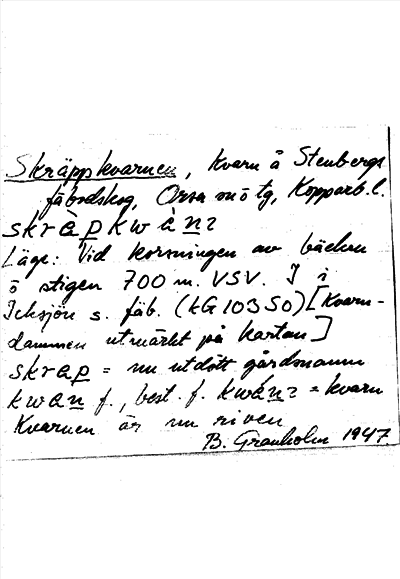 Skräppkvarnen, Kvarn å Stenbergs
fäbodskog, Orsa snö tg, Kopparb.l.
skràpkwànɂ
Läge: Vid korsningen av bäcken
o stigen 700 m. VSV. I i
Icksjön s. fäb. (kG 10350) [Kvarn-
dammen utmärkt på kartan]
skrap = nu utdött gårdsnamn
kwan f., best. f. kwánɂ = kvarn
Kvarnen är nu riven
B. Granholm 1947.